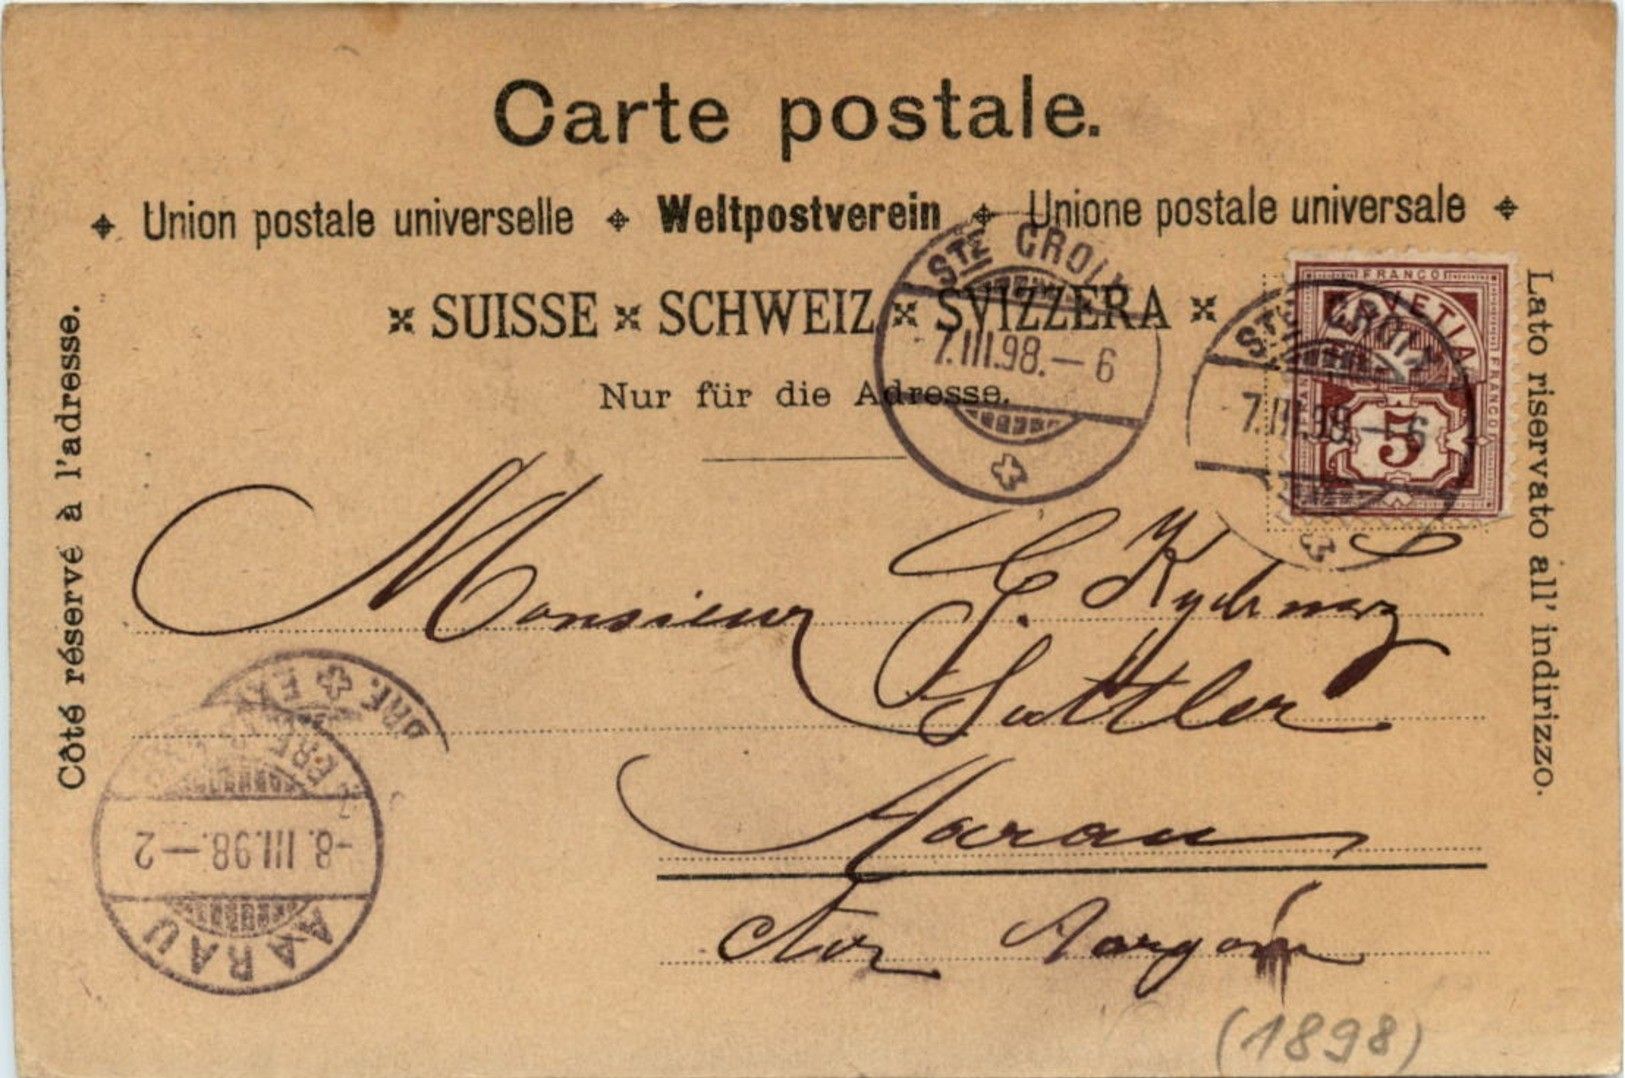 Carte postale.
Union postale universelle Weltpostverein Unione postale universale
SUISSE SCHWEIZ SVIZZERA
Nur für die Adresse.
Côté réservé à l'adresse.
Lato riservato all' indirizzo.
STE CROIX
7.III.98.–6
FRANCO
HELVETIA
FRANCO
5
STE CROIX
7.III.98.–6
Monsieur E.
Sattler
Aarau
Ctor
EXP. BRE.
-8.III.98.–2
AARAU
(1898)